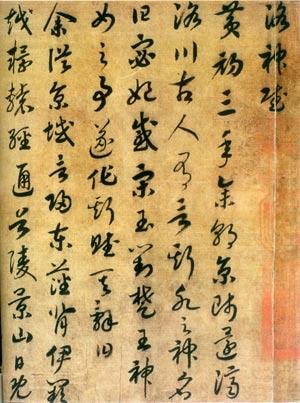 洛神賦
黃初三年余朝京師還濟
洛川古人有言斯水之神名
曰宓妃感宋玉對楚王神
女之事遂作斯賦其辭曰
余從京域言歸東藩背伊闕
越轘轅經通谷陵景山日既